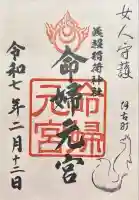 女人守護
阿古町
義照稲荷神社
命婦元宮
命婦元宮
令和七年二月十三日